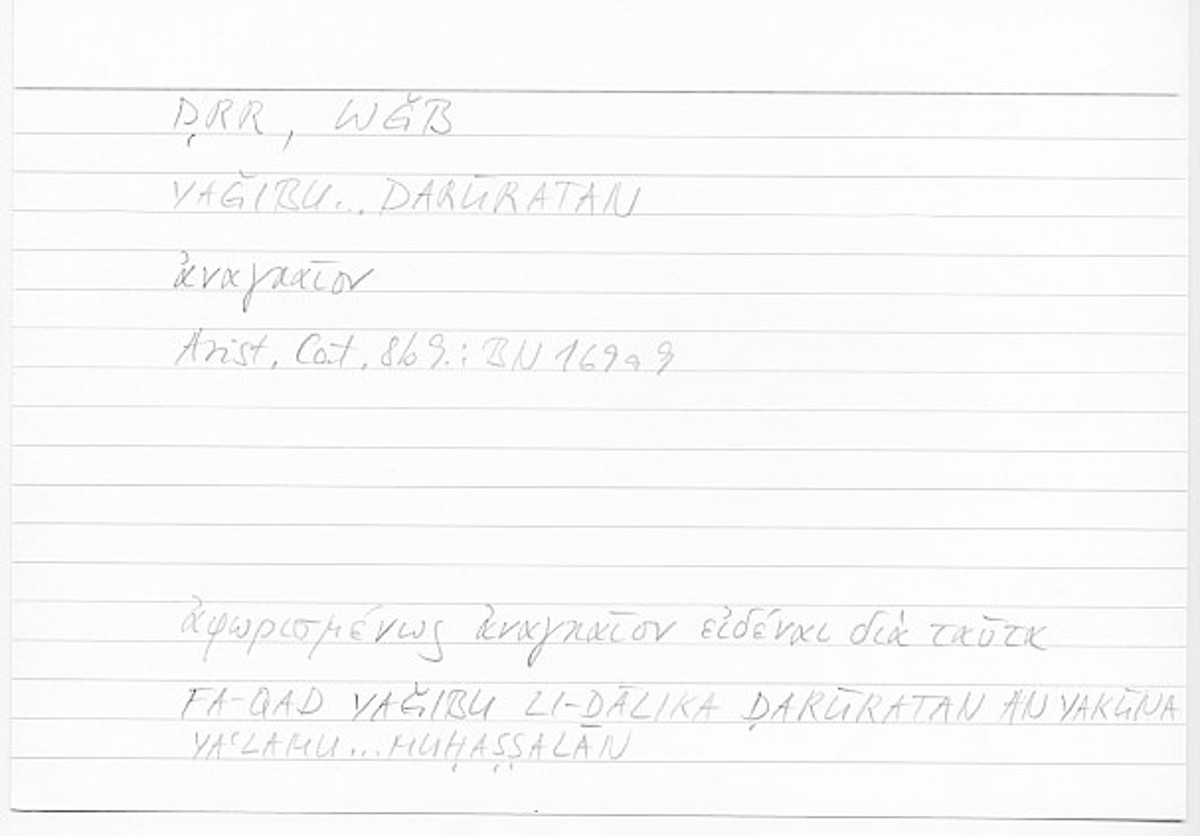 ḌRR, WǦB
YAǦIBU... DARŪRATAN
ἀναγκαῖον
Arist. Cat. 8b9.: BN 169a9
ἀφωρισμένως ἀναγκαῖον εἰδέναι διὰ ταῦτα
FA-QAD YAǦIBU LI-ḎĀLIKA ḌARŪRATAN AN YAKŪNA
YAʿLAMU... MUḤAṢṢALĀN